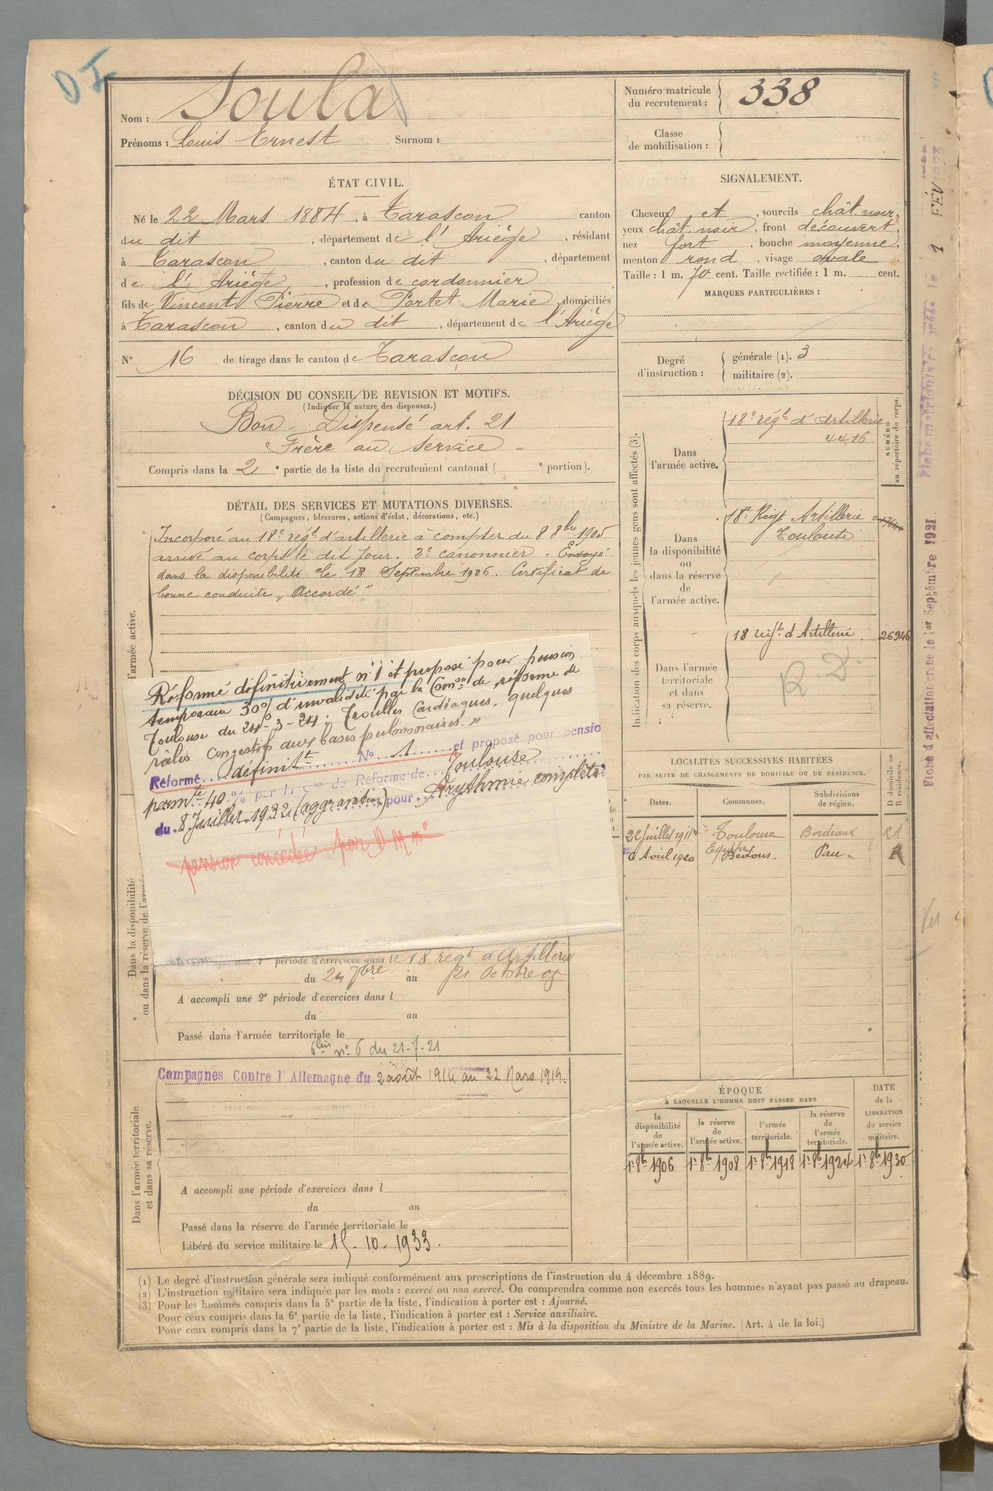 Nom : Soula
Prénoms : Louis Ernest Surnom :
Numéro matricule du recrutement : 338
Classe de mobilisation :
ÉTAT CIVIL.
Né le 22 Mars 1884, à Tarascon canton
du dit, département de l'Ariège, résidant
à Tarascon, canton du dit, département
de l'Ariège, profession de cordonnier
fils de Vincent Pierre et de Portet Marie, domiciliés
à Tarascon, canton du dit, département de l'Ariège
N° 16 de tirage dans le canton de Tarascon
SIGNALEMENT.
Cheveux et, sourcils chât noir,
yeux chât noir, front découvert,
nez fort, bouche moyenne,
menton rond, visage ovale
Taille : 1 m. 70 cent. Taille rectifiée : 1 m. cent.
MARQUES PARTICULIÈRES :
Degré d'instruction :
générale (1). 3
militaire (2).
DÉCISION DU CONSEIL DE REVISION ET MOTIFS.
(Indiquer la nature des dispenses.)
Bon Dispensé art. 21
Frère au service
Compris dans la 2e partie de la liste du recrutement cantonal ( e portion).
DÉTAIL DES SERVICES ET MUTATIONS DIVERSES.
(Campagnes, blessures, actions d'éclat, décorations, etc.)
Incorporé au 18e régt d'artillerie à compter du 8 8bre 1905
arrivé au corps le dit jour. 2e canonnier. Envoyé
dans la disponibilité le 18 Septembre 1906. Certificat de
bonne conduite „ Accordé "
l'armée active.
Réformé définitivement n° 1 et proposé pour pension
temporaire 30% d'invalidité par la Comon de réforme de
Toulouse du 24-3-24 : Troubles Cardiaques, quelques
râles congestifs aux bases pulmonaires. "
Réformé définitt No 1 et proposé pour pensio
permte 40 % par la Con de Réforme de Toulouse
du 8 Juillet 1932 (aggravation) pour Arythmie complète
pension concédée par D M n°
Dans la disponibilité
ou dans la réserve de l'armée
période d'exercices dans le 18 régt d'Artillerie
du 24 7bre au 21 Octobre 09
A accompli une 2e période d'exercices dans l
du au
Passé dans l'armée territoriale le
n° 6 du 21-7-21
Dans l'armée territoriale
et dans sa réserve.
Campagnes Contre l'Allemagne du 2 août 1914 au 22 Mars 1919.
A accompli une période d'exercices dans l
du au
Passé dans la réserve de l'armée territoriale le
Libéré du service militaire le 15-10-1933.
Indication des corps auxquels les jeunes gens sont affectés (3).
NUMÉRO
au répertoire du corps.
Dans l'armée active.
18e régt d'Artillerie
4416
Dans la disponibilité ou dans la réserve de l'armée active.
18e Régt Artillerie
Toulouse
Dans l'armée territoriale et dans sa réserve.
18 régt d'Artillerie 26946
R D.
LOCALITÉS SUCCESSIVES HABITÉES
PAR SUITE DE CHANGEMENTS DE DOMICILE OU DE RÉSIDENCE.
Dates. Communes. Subdivisions de région. D domicile ou R résidence.
Toulouse Bordeaux
Avril 1920 Bedous. Pau. R
ÉPOQUE
À LAQUELLE L'HOMME DOIT PASSER DANS
la disponibilité de l'armée active.
la réserve de l'armée active.
l'armée territoriale.
la réserve de l'armée territoriale.
DATE de la LIBÉRATION du service militaire.
1er 8b 1906 1er 8b 1908 1er 8b 1918 1er 8b 1924 1er 8b 1930
(1) Le degré d'instruction générale sera indiqué conformément aux prescriptions de l'instruction du 4 décembre 1889.
(2) L'instruction militaire sera indiquée par les mots : exercé ou non exercé. On comprendra comme non exercés tous les hommes n'ayant pas passé au drapeau.
(3) Pour les hommes compris dans la 5e partie de la liste, l'indication à porter est : Ajourné.
Pour ceux compris dans la 6e partie de la liste, l'indication à porter est : Service auxiliaire.
Pour ceux compris dans la 7e partie de la liste, l'indication à porter est : Mis à la disposition du Ministre de la Marine. (Art. 4 de la loi.)
Fiche d'affectation créée le 1er Septembre 1921